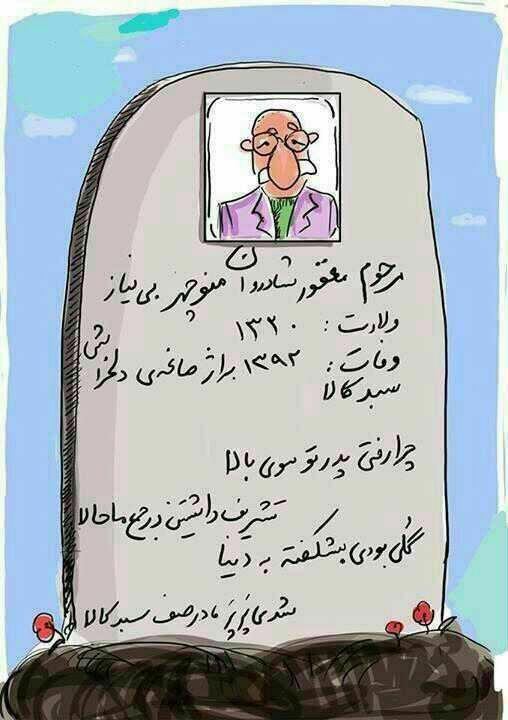 مرحوم مغفور شادروان منوچهر بی نیاز
ولادت: ۱۳۲۰
وفات: ۱۳۹۲ بر اثر صاعقه‌ی دلخراش
سبد کالا
چرا رفتی پدر تو سوی بالا
تشریف داشتین در جمع ما حالا
گلی بودی بشکفته به دنیا
شدی پرپر ما در صف سبد کالا